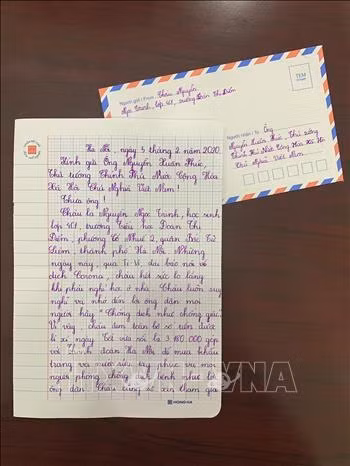 Người gửi / From: Cháu Nguyễn
Ngọc Trinh, lớp 4C1, trường Đoàn Thị Điểm
TEM
Người nhận / To: Ông
Nguyễn Xuân Phúc, Thủ tướng
Chính Phủ Nước Cộng Hòa Xã Hội
Chủ Nghĩa Việt Nam.
Hà Nội, ngày 5 tháng 2 năm 2020.
Kính gửi Ông Nguyễn Xuân Phúc,
Thủ tướng Chính Phủ Nước Cộng Hòa
Xã Hội Chủ Nghĩa Việt Nam!
Thưa ông!
Cháu là Nguyễn Ngọc Trinh, học sinh
lớp 4C1, trường Tiểu học Đoàn Thị
Điểm, phường Cổ Nhuế 2, quận Bắc Từ
Liêm, thành phố Hà Nội. Những
ngày này, qua Ti Vi, đài báo nói về
dịch Corona, cháu hết sức lo lắng
khi phải nghỉ học ở nhà. Cháu luôn suy
nghĩ và nhớ đến lời ông dặn mọi
người hãy "Chống dịch như chống giặc".
Vì vậy, cháu đem toàn bộ số tiền được
lì xì ngày Tết vừa rồi là 3.180.000 góp
với Thành đoàn Hà Nội để mua khẩu
trang và nước rửa tay phục vụ mọi
người phòng chống dịch bệnh như lời
ông dặn. Cháu cũng sẽ xin tham gia
HONG HA
VNA